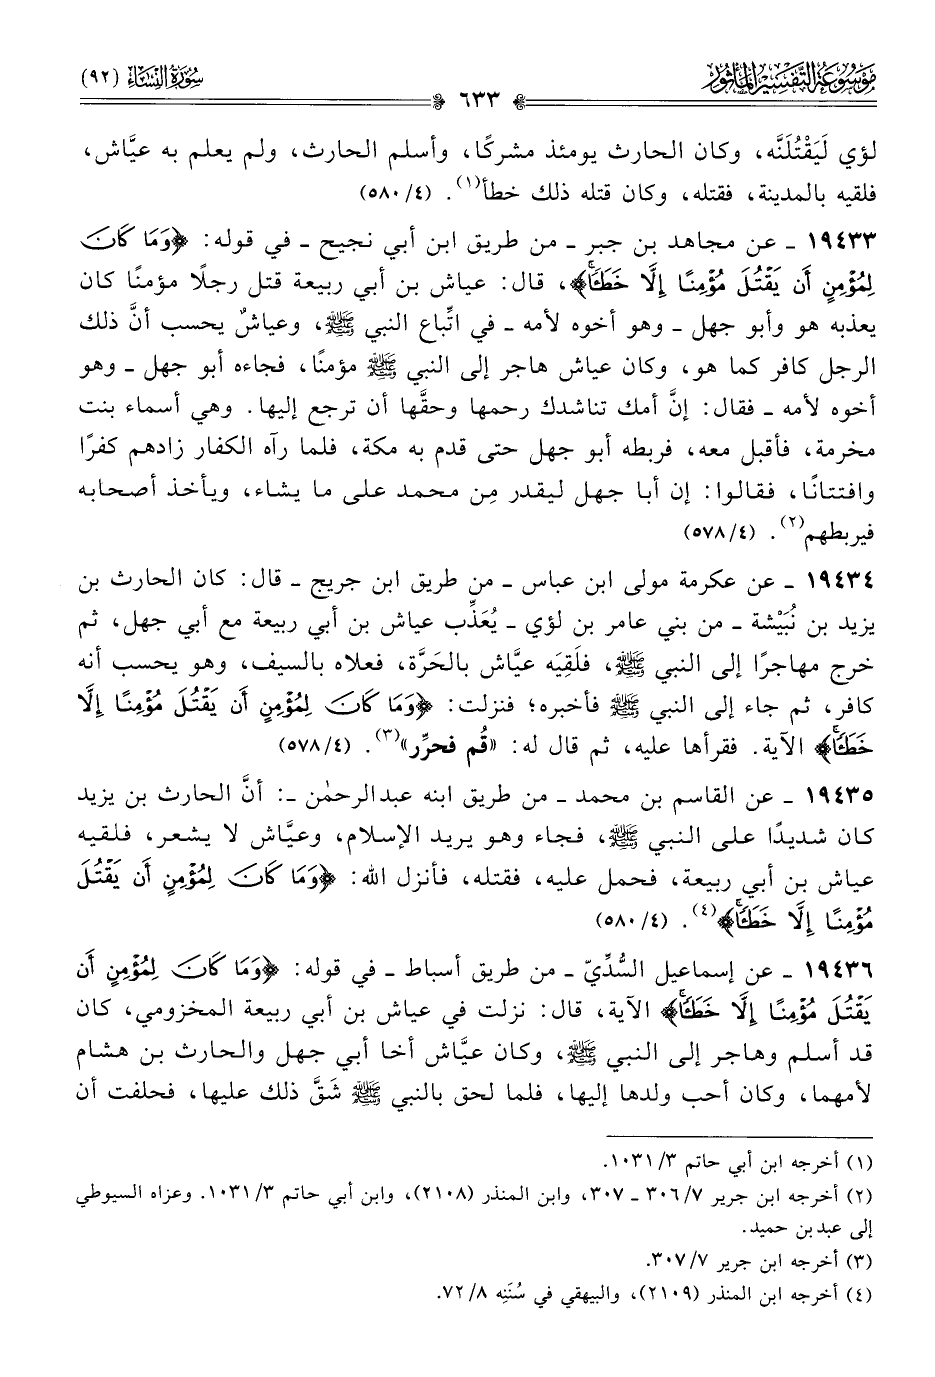 مَوْسُوعَةُ التَّفْسِيرِ المَأْثُورِ
سُورَةُ النِّسَاءِ (٩٢)
٦٣٣
لؤي لَيَقْتُلَنَّه، وكان الحارث يومئذ مشركًا، وأسلم الحارث، ولم يعلم به عيَّاش،
فلقيه بالمدينة، فقتله، وكان قتله ذلك خطأ(١). (٤/ ٥٨٠)
١٩٤٣٣ ـ عن مجاهد بن جبر ـ من طريق ابن أبي نجيح ـ في قوله: ﴿وَمَا كَانَ
لِمُؤْمِنٍ أَن يَقْتُلَ مُؤْمِنًا إِلَّا خَطَـًٔا﴾، قال: عياش بن أبي ربيعة قتل رجلًا مؤمنًا كان
يعذبه هو وأبو جهل ـ وهو أخوه لأمه ـ في اتِّباع النبي ﷺ، وعياشٌ يحسب أنَّ ذلك
الرجل كافر كما هو، وكان عياش هاجر إلى النبي ﷺ مؤمنًا، فجاءه أبو جهل ـ وهو
أخوه لأمه ـ فقال: إنَّ أمك تناشدك رحمها وحقَّها أن ترجع إليها. وهي أسماء بنت
مخرمة، فأقبل معه، فربطه أبو جهل حتى قدم به مكة، فلما رآه الكفار زادهم كفرًا
وافتتانًا، فقالوا: إن أبا جهل ليقدر مِن محمد على ما يشاء، ويأخذ أصحابه
فيربطهم(٢). (٤/ ٥٧٨)
١٩٤٣٤ ـ عن عكرمة مولى ابن عباس ـ من طريق ابن جريج ـ قال: كان الحارث بن
يزيد بن نُبَيْشة ـ من بني عامر بن لؤي ـ يُعَذِّب عياش بن أبي ربيعة مع أبي جهل، ثم
خرج مهاجرًا إلى النبي ﷺ، فلَقِيَه عيَّاش بالحَرَّة، فعلاه بالسيف، وهو يحسب أنه
كافر، ثم جاء إلى النبي ﷺ فأخبره؛ فنزلت: ﴿وَمَا كَانَ لِمُؤْمِنٍ أَن يَقْتُلَ مُؤْمِنًا إِلَّا
خَطَـًٔا﴾ الآية. فقرأها عليه، ثم قال له: «قُم فحرِّر»(٣). (٤/ ٥٧٨)
١٩٤٣٥ ـ عن القاسم بن محمد ـ من طريق ابنه عبدالرحمٰن ـ: أنَّ الحارث بن يزيد
كان شديدًا على النبي ﷺ، فجاء وهو يريد الإسلام، وعيَّاش لا يشعر، فلقيه
عياش بن أبي ربيعة، فحمل عليه، فقتله، فأنزل الله: ﴿وَمَا كَانَ لِمُؤْمِنٍ أَن يَقْتُلَ
مُؤْمِنًا إِلَّا خَطَـًٔا﴾(٤). (٤/ ٥٨٠)
١٩٤٣٦ ـ عن إسماعيل السُّدِّيّ ـ من طريق أسباط ـ في قوله: ﴿وَمَا كَانَ لِمُؤْمِنٍ أَن
يَقْتُلَ مُؤْمِنًا إِلَّا خَطَـًٔا﴾ الآية، قال: نزلت في عياش بن أبي ربيعة المخزومي، كان
قد أسلم وهاجر إلى النبي ﷺ، وكان عيَّاش أخا أبي جهل والحارث بن هشام
لأمهما، وكان أحب ولدها إليها، فلما لحق بالنبي ﷺ شَقَّ ذلك عليها، فحلفت أن
(١) أخرجه ابن أبي حاتم ٣/ ١٠٣١.
(٢) أخرجه ابن جرير ٧/ ٣٠٦ ـ ٣٠٧، وابن المنذر (٢١٠٨)، وابن أبي حاتم ٣/ ١٠٣١. وعزاه السيوطي
إلى عبد بن حميد.
(٣) أخرجه ابن جرير ٧/ ٣٠٧.
(٤) أخرجه ابن المنذر (٢١٠٩)، والبيهقي في سُنَنِه ٨/ ٧٢.